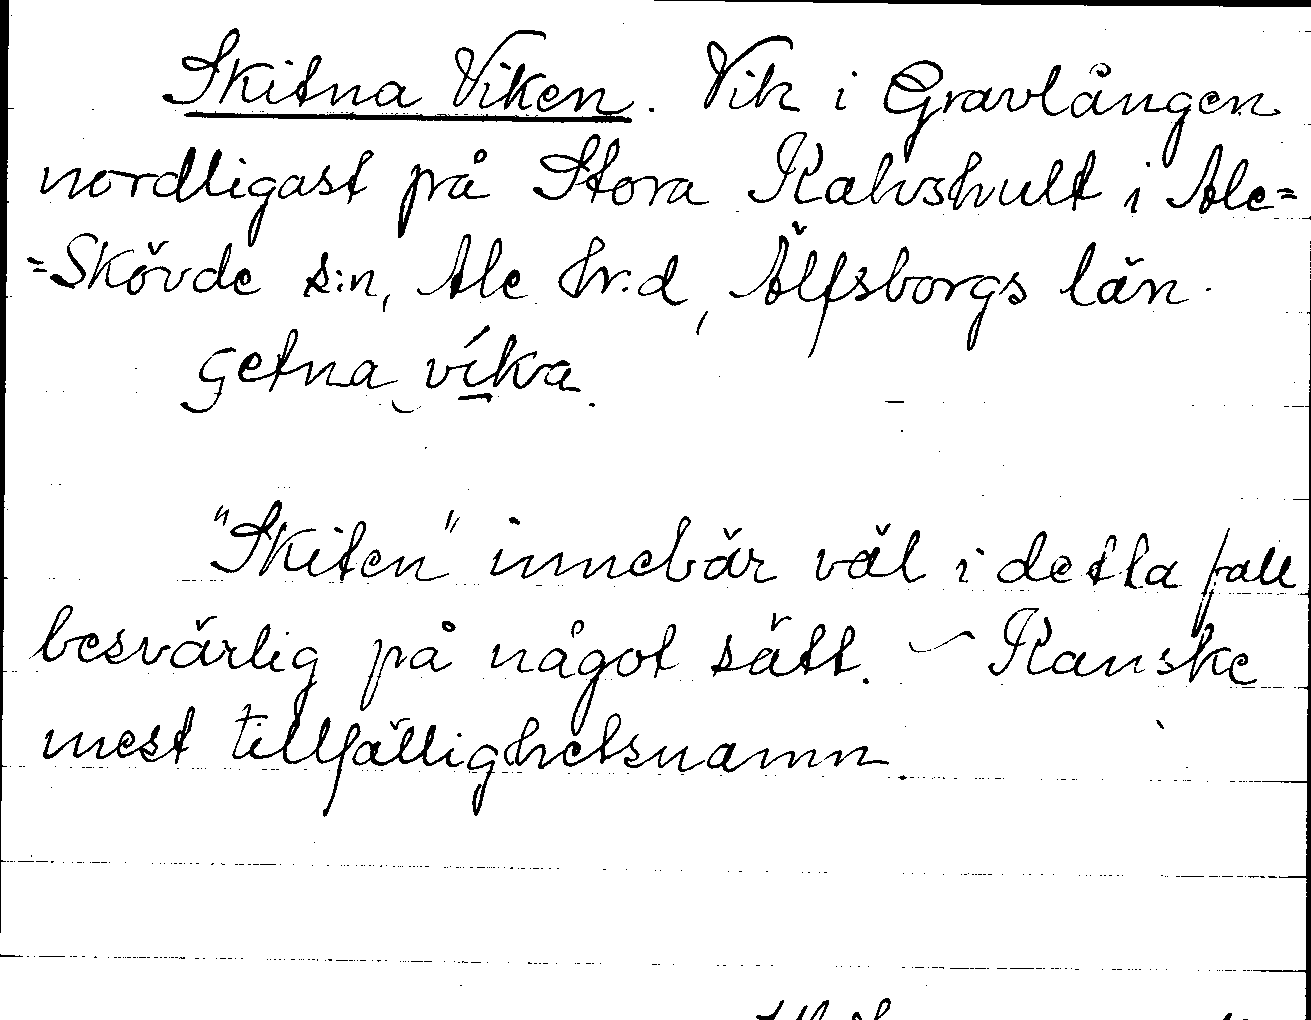 Skitna Viken. Vik i Gravlången
nordligast på Stora Kalvshult i Ale=
=Skövde s:n, Ale hr:d, Älfsborgs län.
getna víka
"Skiten" innebär väl i detta fall
besvärlig på något sätt. – Kanske
mest tillfällighetsnamn.